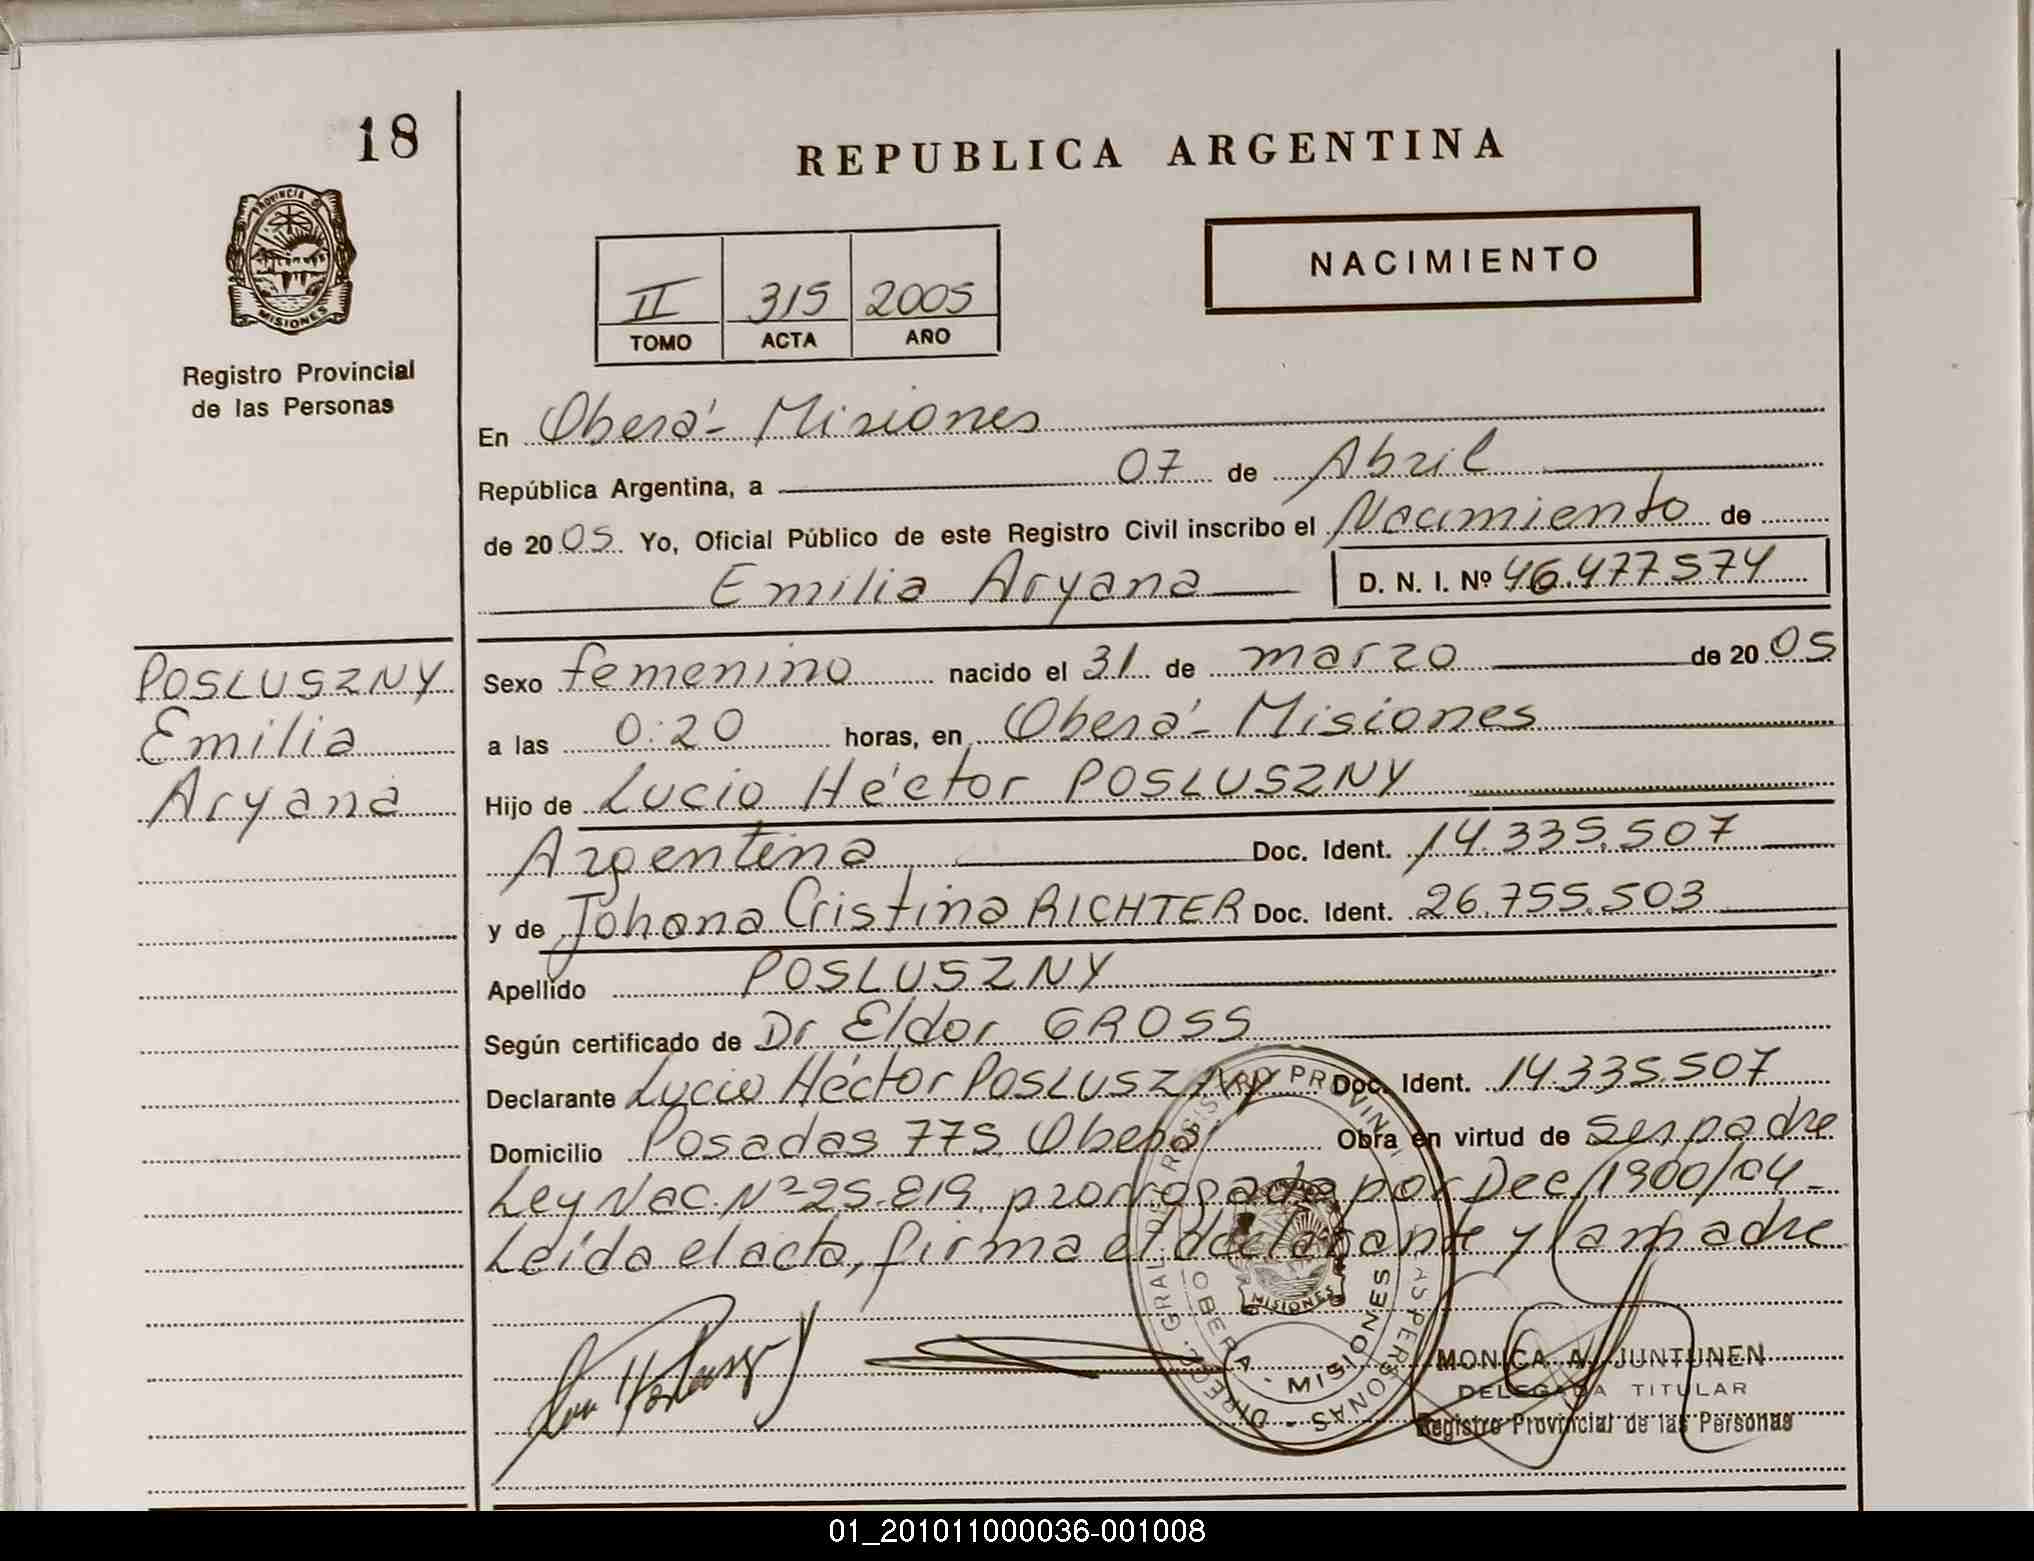 18
REPUBLICA ARGENTINA
PROVINCIA DE
MISIONES
Registro Provincial
de las Personas
NACIMIENTO
II 315 2005
TOMO ACTA AÑO
En Oberá - Misiones
República Argentina, a 07 de Abril
de 2005 Yo, Oficial Público de este Registro Civil inscribo el Nacimiento de
Emilia Aryana D. N. I. Nº 46.477574
POSLUSZNY
Emilia
Aryana
Sexo femenino nacido el 31 de marzo de 2005
a las 0:20 horas, en Oberá - Misiones
Hijo de Lucio Héctor POSLUSZNY
Argentina Doc. Ident. 14.335.507
y de Johana Cristina RICHTER Doc. Ident. 26.755.503
Apellido POSLUSZNY
Según certificado de Dr Eldor GROSS
Declarante Lucio Héctor POSLUSZNY Doc. Ident. 14.335.507
Domicilio Posadas 775 Oberá Obra en virtud de ser padre
Ley Nac. Nº 25.819 prorrogada por Dec/1900/04 -
Leída el acta, firma el declarante y la madre
OBERA - MISIONES
MISIONES
MONICA A. JUNTUNEN
DELEGADA TITULAR
Registro Provincial de las Personas
01_201011000036-001008